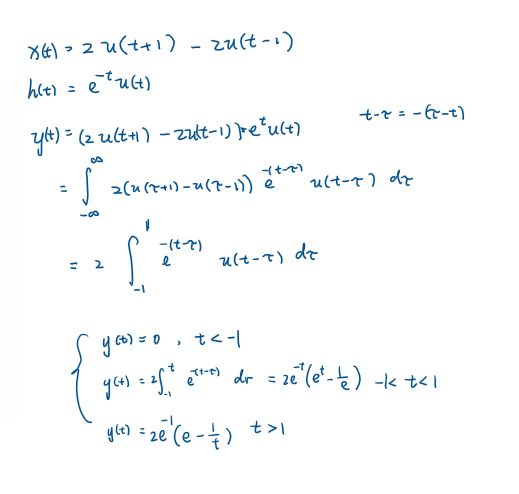 x(t) = 2u(t+1) - 2u(t-1)
h(t) = e^{-t}u(t)
y(t) = (2u(t+1) - 2u(t-1)) * e^{-t}u(t) t-τ = -(τ-t)
= ∫_{-∞}^{∞} 2(u(τ+1)-u(τ-1)) e^{-(t-τ)} u(t-τ) dτ
= 2 ∫_{-1}^{1} e^{-(t-τ)} u(t-τ) dτ
y(t) = 0 , t < -1
y(t) = 2∫_{-1}^{t} e^{-(t-τ)} dτ = 2e^{-t}(e^{t} - 1/e) -1< t<1
y(t) = 2e^{-1}(e - 1/t) t >1